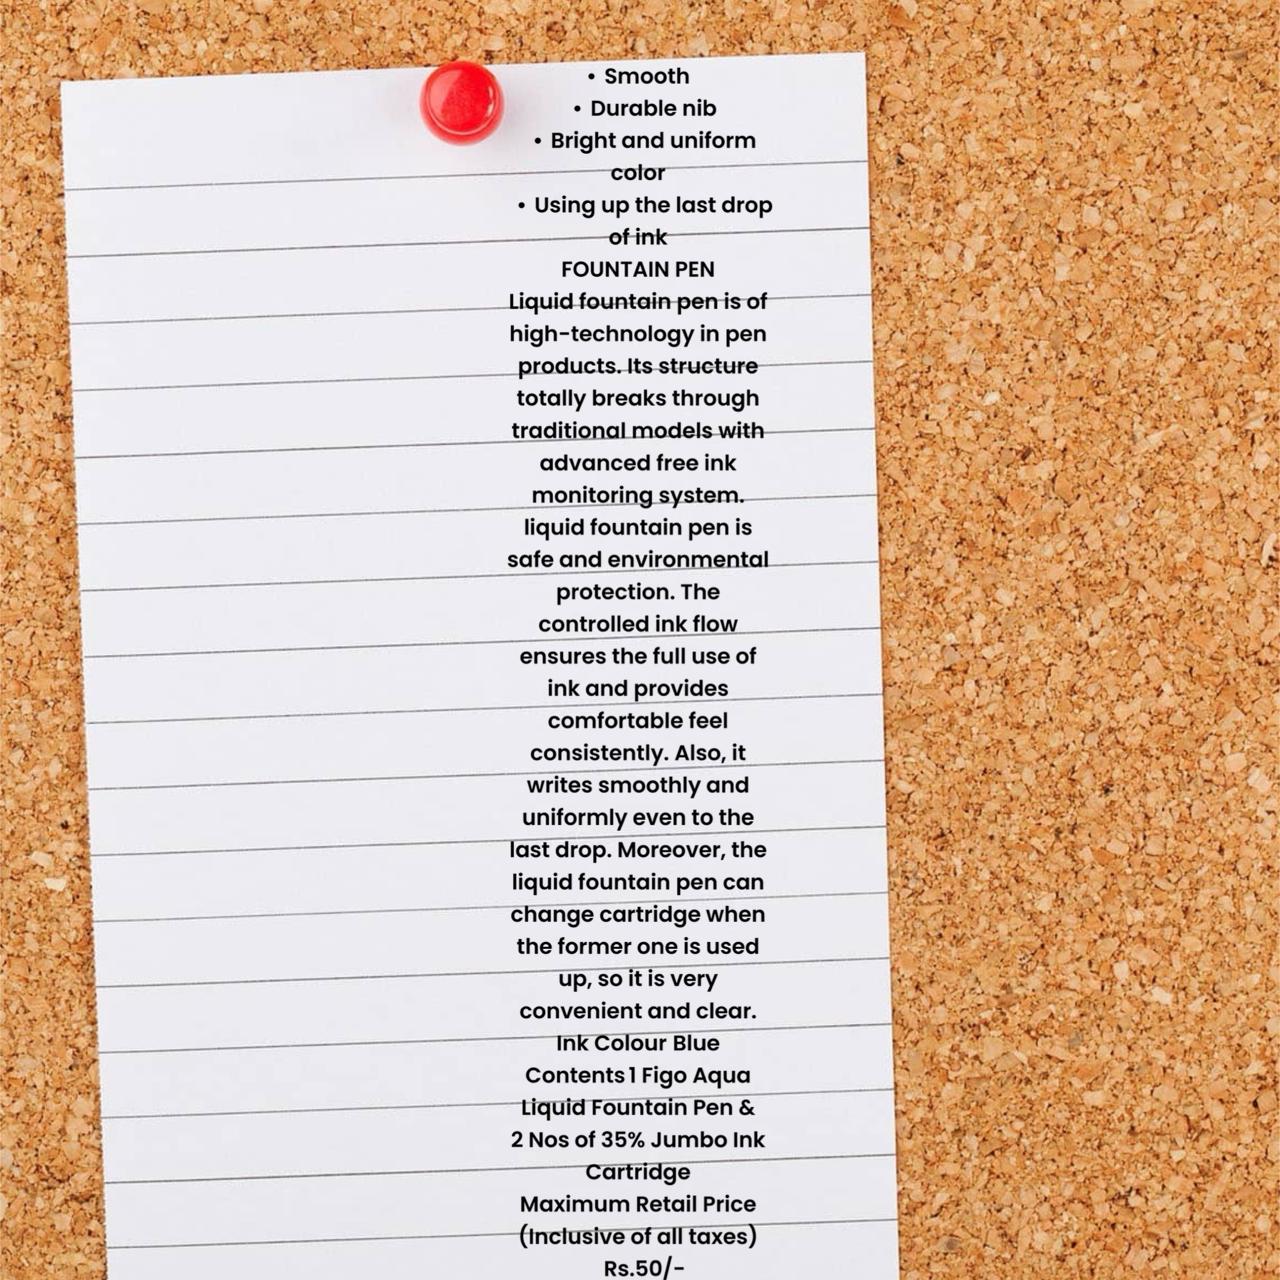 • Smooth
• Durable nib
• Bright and uniform
color
• Using up the last drop
of ink
FOUNTAIN PEN
Liquid fountain pen is of
high-technology in pen
products. Its structure
totally breaks through
traditional models with
advanced free ink
monitoring system.
liquid fountain pen is
safe and environmental
protection. The
controlled ink flow
ensures the full use of
ink and provides
comfortable feel
consistently. Also, it
writes smoothly and
uniformly even to the
last drop. Moreover, the
liquid fountain pen can
change cartridge when
the former one is used
up, so it is very
convenient and clear.
Ink Colour Blue
Contents 1 Figo Aqua
Liquid Fountain Pen &
2 Nos of 35% Jumbo Ink
Cartridge
Maximum Retail Price
(Inclusive of all taxes)
Rs.50/-